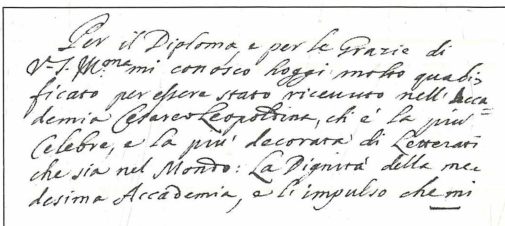 Per il Diploma, e per le Grazie di
V. S. Ill.ma mi conosco hoggi molto quali-
ficato per essere stato riceuuto nell' Acca=
demia Cesareo Leopoldina, ch' è la più
Celebre, e la più decorata di Letterati
che sia nel Mondo: La Dignità della me-
desima Accademia, e li impulso che mi